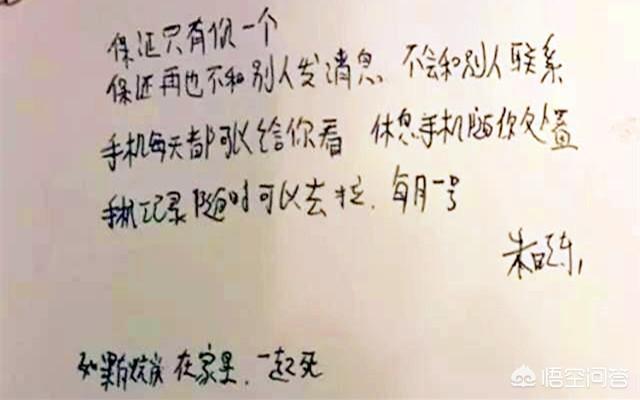 保证只有你一个
保还再也不和别人发消息 不会和别人联系
手机每天都可以给你看 休息手机随你处置
手机记录随时可以去拉，每月一号
朱晓东
如果有 在家里，一起死
悟空问答